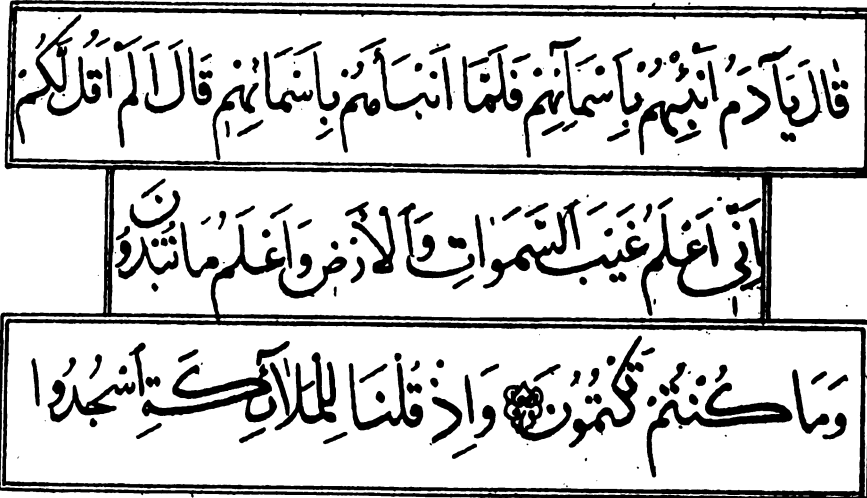 قَالَ يَآ اٰدَمُ اَنْبِئْهُمْ بِاَسْمَآئِهِمْ فَلَمَّا اَنْبَاَهُمْ بِاَسْمَآئِهِمْ قَالَ اَلَمْ اَقُلْ لَكُمْ
اِنّٖى اَعْلَمُ غَيْبَ السَّمٰوَاتِ وَالْاَرْضِ وَاَعْلَمُ مَا تُبْدُونَ
وَمَا كُنْتُمْ تَكْتُمُونَ وَاِذْ قُلْنَا لِلْمَلٰٓئِكَةِ اسْجُدُوا